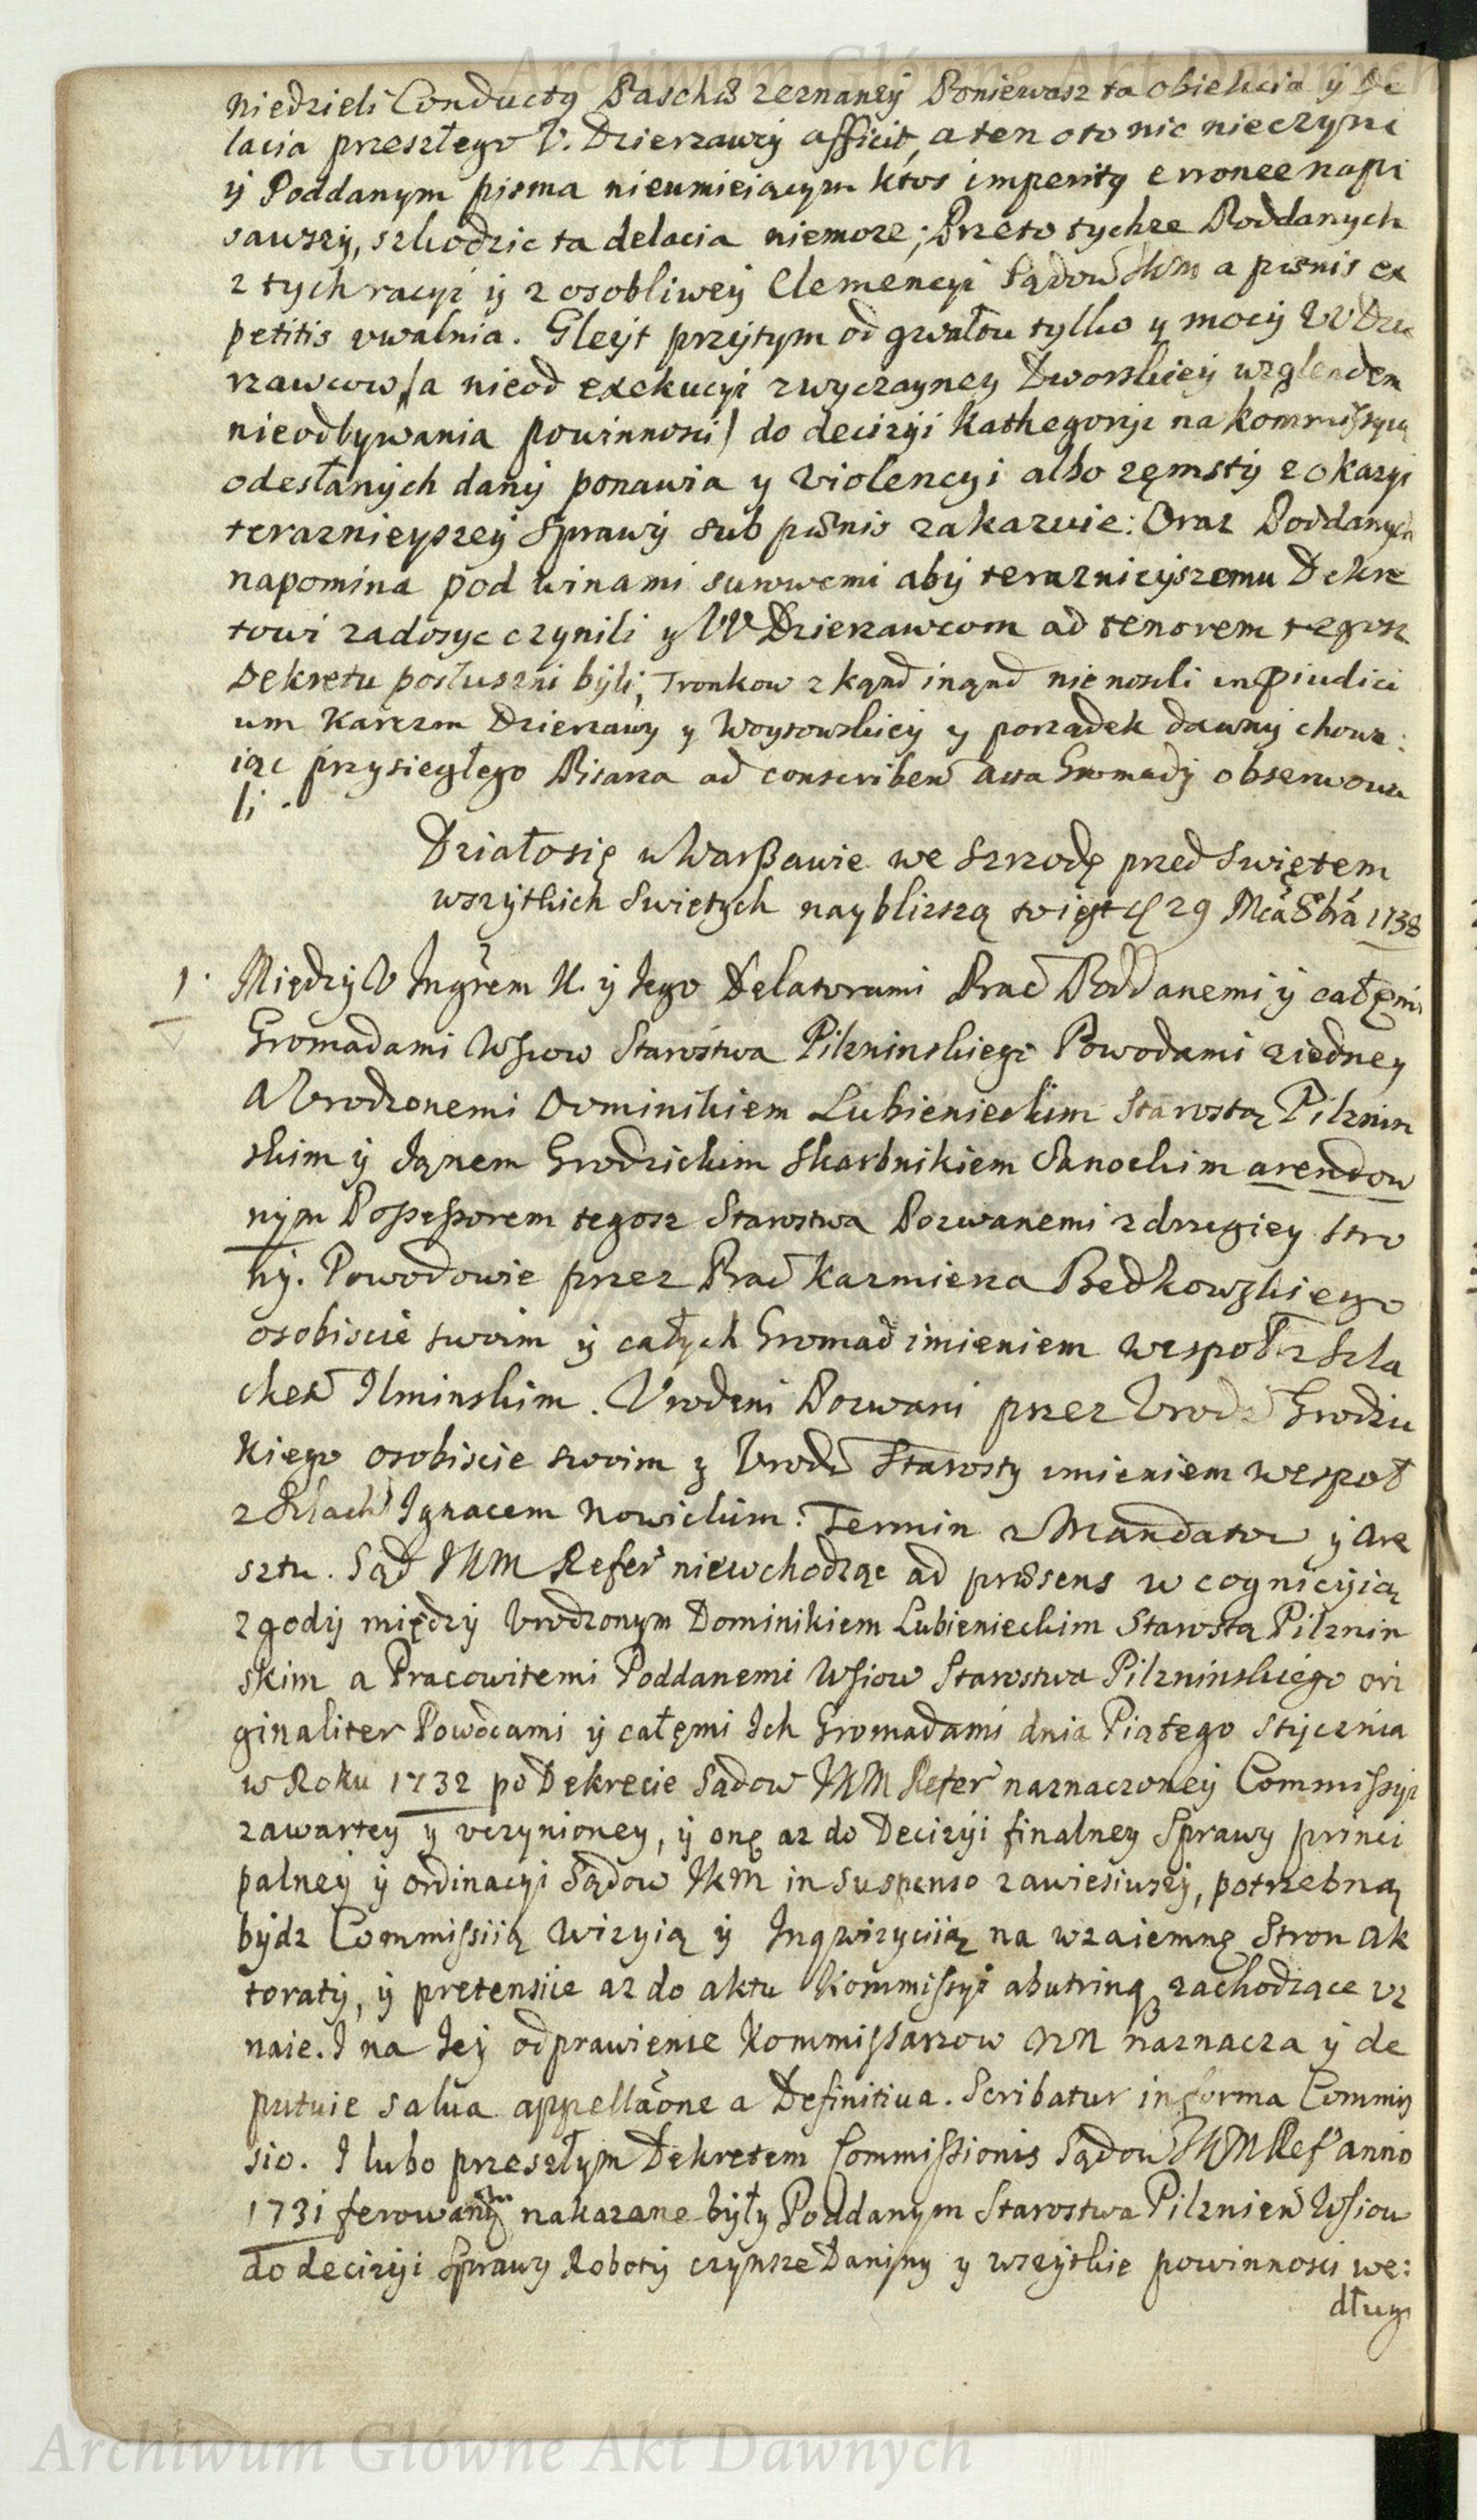 Archiwum Główne Akt Dawnych
niedzieli Conductq Paschæ zeznaney Poniewasz ta obielicia ÿ De
lacia przeszłego V. Dzierzawcÿ afficit, a ten oto nic nieczÿni
ÿ Poddanym pisma nieumieiącym ktos imperitq erronee napi
sawszÿ, szkodzic ta delacia niemoze; Przeto tychze Poddanych
z tych racyi ÿ z osobliweÿ Clemencyi Sądow JKM a pœnis ex
petitis uwalnia. Gleÿt przÿtÿm od gwałtu tylko y mocÿ WDzie
rzawcow /a nieod exekucyi zwyczayney Dworskieÿ wzglendem
nieodbÿwania powinnosci/ do decizyi kathegoryi na kommissyią
odesłanÿch danÿ ponawia y violencyi albo zęmstÿ z okazyi
terazniejszeÿ Sprawÿ sub pœnis zakazuie: Oraz Poddanych
napomina pod winami surowemi abÿ terazniejszemu Dekre
towi zadosyc czynili y WDzierzawcom ad tenorem tegosz
Dekretu posłuszni bÿli, Tronkow zkąd inąd nie nosili in præiudici
um Karczm Dzierzawy y Woytowskieÿ y porządek dawnÿ chowa:
iąc przysiegłego Pisarza ad conscriben acta Gromadÿ obserwowa
li.
Działosię w Warszawie we szrzodę przed swiętem
wszytkich Swietych nayblizszą to iest d 29 Mca 8bra 1738
1. Międzÿ W Ingrem N. ÿ Jego Delatorami Prac Poddanemi ÿ całęmi
Gromadami Wsiow Starostwa Pilzninskiego Powodami ziedney
A Urodzonemi Dominikiem Lubienieckim Starostą Pilznin
skim ÿ Jąnem Grodzickim Skarbnikiem Sanockim arendow
nÿm Possessorem tegosz Starostwa Pozwanemi z drugiey stro
nÿ. Powodowie przez Prac Kazmierza Bedkowskiego
osobiscie swoim ÿ całÿch Gromad imieniem wespoł z Szla
chet Ilminskim. Urodzeni Pozwani przez Urodz Grodzic
kiego osobiscie swoim y Urodz Starosty imieniem wespoł
z Szlach Ignacem Nowickim. Termin z Mandatu ÿ Are
sztu. Sąd JKM Refer niewchodząc ad præsens w cognicyią
zgodÿ międzÿ Urodzonym Dominikiem Lubienieckim Starostą Pilznin
skim a Pracowitemi Poddanemi Wsiow Starostwa Pilzninskiego ori
ginaliter Powodami ÿ całęmi Ich Gromadami dnia Piątego Stÿcznia
w Roku 1732 po Dekrecie Sadow JKM Refer naznaczoneÿ Commissyi
zawartey y uczynioney, ÿ onę az do Decizyi finalney Sprawy princi
palneÿ ÿ ordinacyi Sądow JKM in suspenso zawiesiwszÿ, potrzebną
bÿdz Commissiią Wizyią ÿ Inqwizyciią na wzaiemnę Stron Ak
toratÿ, ÿ pretensiie az do aktu Kommissyi ab utrinq zachodzące uz
naie. I na Jeÿ odprawienie Kommissarzow NN naznacza ÿ de
putuie salua appellaone a Definitiua. Scribatur in forma Commis
sio. I lubo przeszłym Dekretem Commissionis Sądow JKM Ref anno
1731 ferowanym nakazane były Poddanym Starostwa Pilznien Wsiow
do decizÿi Sprawy Robotÿ czynsze Daniny y wszÿtkie powinnosci we:
dług
Archiwum Główne Akt Dawnych